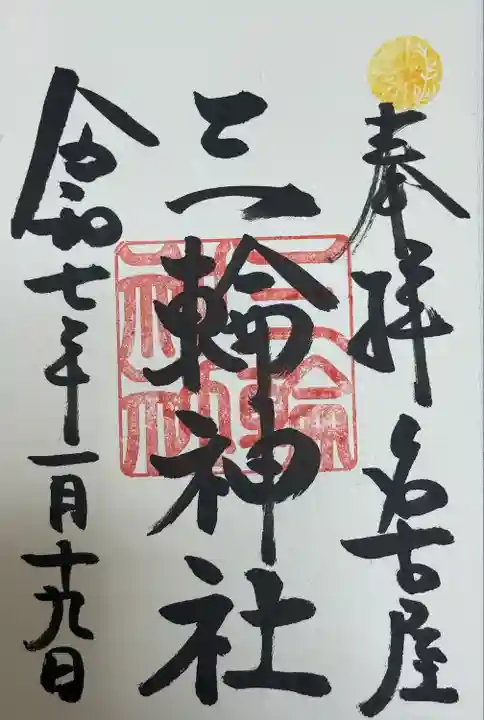 奉拝 名古屋
三輪神社
令和七年一月十九日
三輪神社